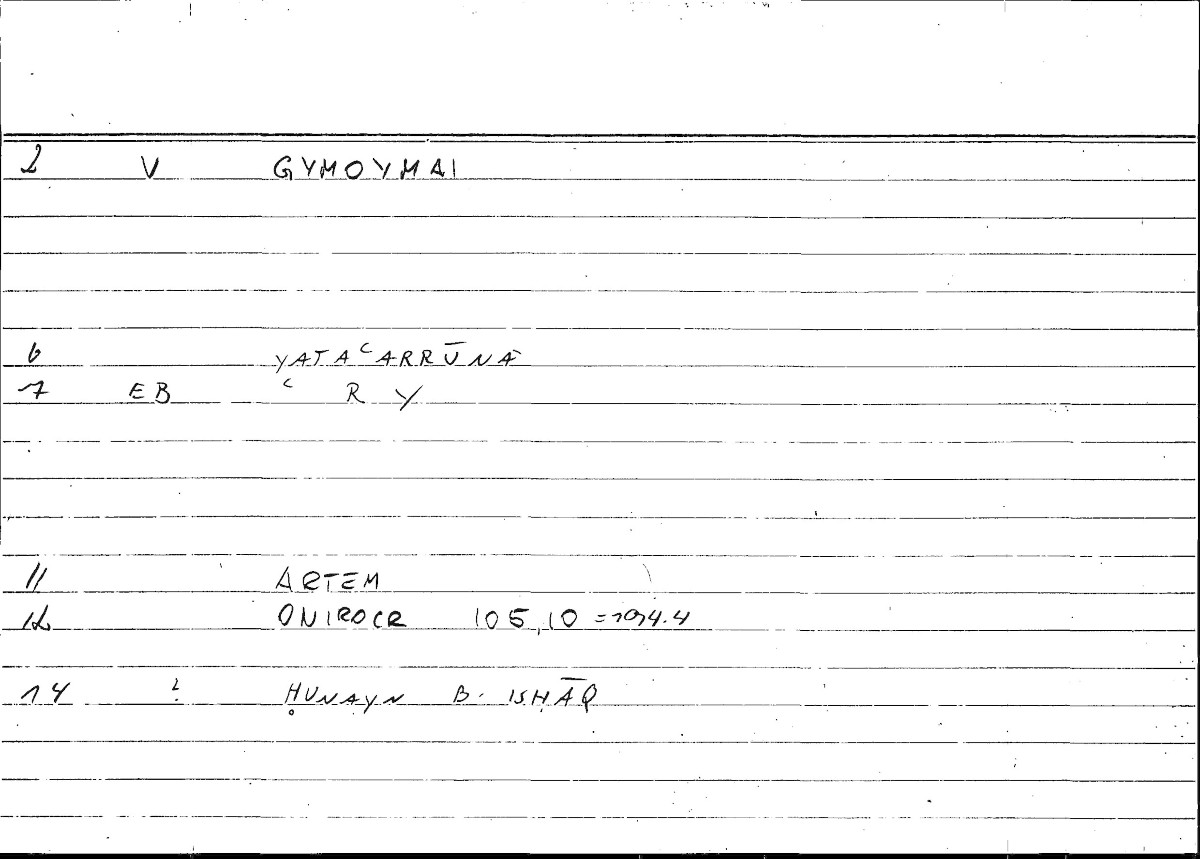 2 V GYMOYMAI
6 YATAʿARRŪNA
7 EB ʿ R Y
11 ARTEM
12 ONIROCR 105,10
14 ḤUNAYN B. ISḤĀQ